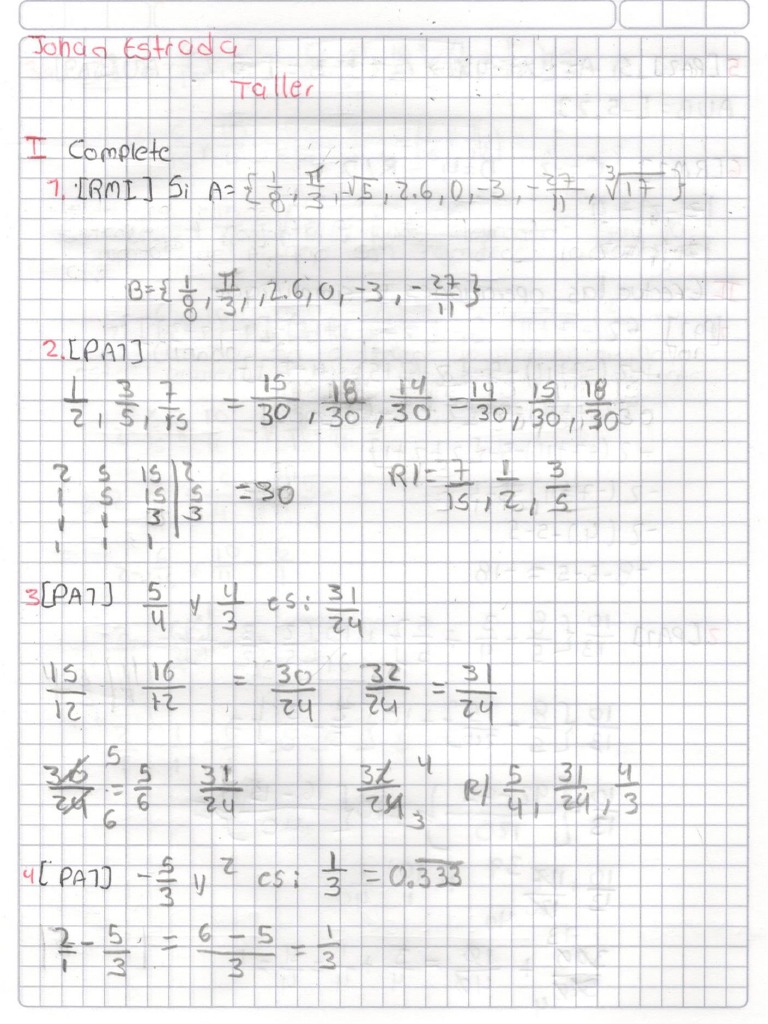 Johan Estrada
Taller
I Complete
1. [RMI] Si A={1/8, π/3, √5, 2.6, 0, -3, -27/11, ∛17}
B={1/8, π/3, , 2.6, 0, -3, -27/11}
2. [PA7]
1/2, 3/5, 7/15 = 15/30, 18/30, 14/30 = 14/30, 15/30, 18/30
2 5 15 | 2
1 5 15 | 5 = 30 R/= 7/15, 1/2, 3/5
1 1 3 | 3
1 1 1
3 [PA7] 5/4 y 4/3 es: 31/24
15/12 16/12 = 30/24 32/24 = 31/24
30/24 5/6 = 5/6 31/24 32/24 4/3 R/ 5/4, 31/24, 4/3
4 [PA7] -5/3 y 2 es: 1/3 = 0.333
2/1 - 5/3 = 6 - 5/3 = 1/3